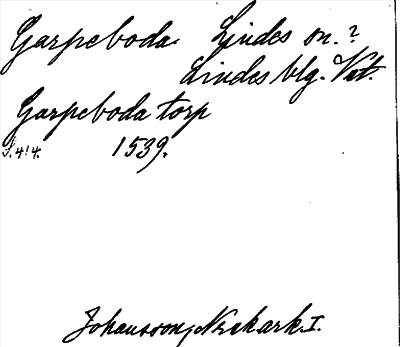 Garpeboda. Lindes sn.?
Lindes blg. Vstm.
Garpeboda torp
S. 414. 1539.
Johansson, Noraskog I.